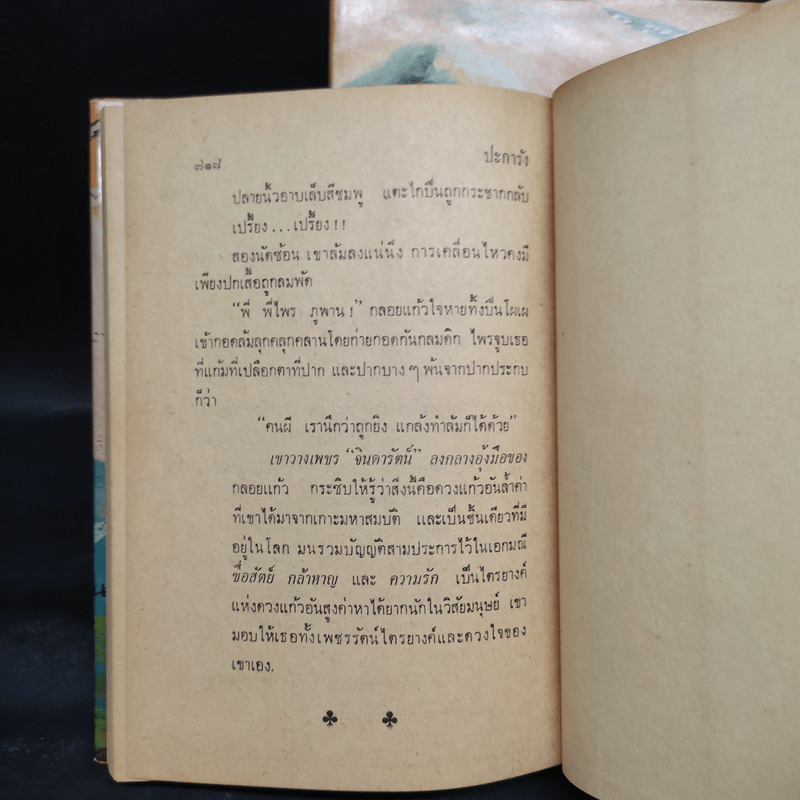 ๗๑๘
ปะการัง
ปลายนิ้วอาบเล็บสีชมพู แตะไกปืนถูกกระชากกลับ
เปรี้ยง...เปรี้ยง!!
สองนัดซ้อน เขาล้มลงแน่นิ่ง การเคลื่อนไหวคงมี
เพียงปกเสื้อถูกลมพัด
“พี่ พี่ไพร ภูพาน!” กลอยแก้วใจหายทิ้งปืนโผเผ
เข้ากอดล้มลุกคลุกคลานโดยก่ายกอดกันกลมดิก ไพรจูบเธอ
ที่แก้มที่เปลือกตาที่ปาก และปากบาง ๆ พ้นจากปากประกบ
ก็ว่า
“คนผี เรานึกว่าถูกยิง แกล้งทำล้มก็ได้ด้วย”
เขาวางเพชร “จินดารัตน์” ลงกลางอุ้งมือของ
กลอยแก้ว กระซิบให้รู้ว่าสิ่งนี้คือดวงแก้วอันล้ำค่า
ที่เขาได้มาจากเกาะมหาสมบัติ และเป็นชิ้นเดียวที่มี
อยู่ในโลก มนรวมบัญญัติสามประการไว้ในเอกมณี
ซื่อสัตย์ กล้าหาญ และ ความรัก เป็นไตรยางค์
แห่งดวงแก้วอันสูงค่าหาได้ยากนักในวิสัยมนุษย์ เขา
มอบให้เธอทั้งเพชรรัตน์ไตรยางค์และดวงใจของ
เขาเอง.